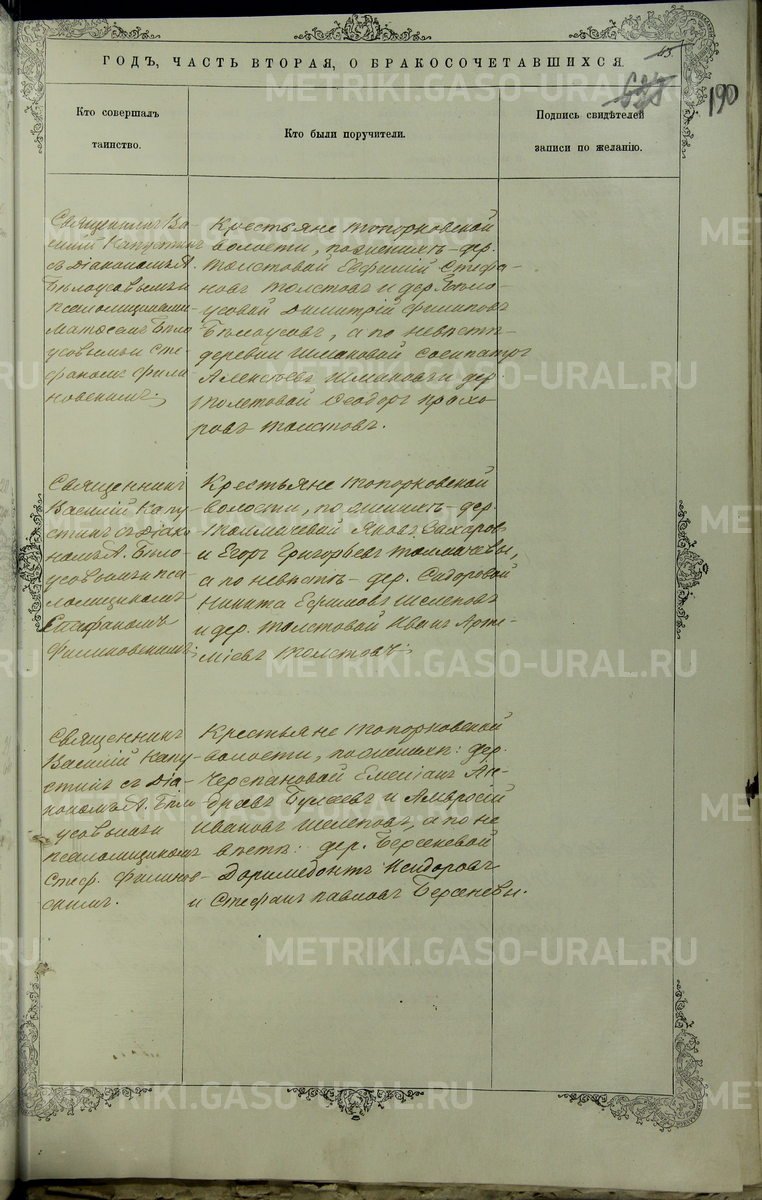 ГОДЪ, ЧАСТЬ ВТОРАЯ, О БРАКОСОЧЕТАВШИХСЯ.
190
Кто совершалъ
таинство.
Кто были поручители.
Подпись свидѣтелей
записи по желанію.
Священникъ Ва-
силій Капустинъ
съ діакономъ А.
Бѣлоусовымъ и
псаломщиками
Матѳеемъ Бѣло
усовымъ и Сте-
фаномъ Фили
новскимъ;
Крестьяне Топорковской
волости, по женихѣ - дер.
Толстовой Евфимій Стефа-
новъ Толстовъ и дер. Бѣло-
усовой Димитрій Филиповъ
Бѣлоусовъ, а по невѣстѣ -
деревни Шмаковой Сосипатръ
Алексѣевъ Шмаковъ и дер.
Толстовой Ѳеодоръ Прохо-
ровъ Толстовъ.
Священникъ
Василій Капу
стинъ съ діако-
номъ А. Бѣло-
усовымъ и пса-
ломщикомъ
Стефаномъ
Филиновскимъ;
Крестьяне Топорковской
волости, по женихѣ - дер.
Толмачевой Яковъ Захаровъ
и Егоръ Григорьевъ Толмачевы,
а по невѣстѣ - дер. Сидоровой
Никита Ефимовъ Шелеповъ
и дер. Толстовой Иванъ Арте-
міевъ Толстовъ;
Священникъ
Василій Капу-
стинъ съ діа-
кономъ А. Бѣло
усовымъ и
псаломщикомъ
Стеф. Филинов-
скимъ.
Крестьяне Топорковской
волости, по женихѣ: дер.
Черепановой Емеліанъ
Булаевъ и Амвросій
Ивановъ Шелеповъ, а по не
вѣстѣ: дер. Берсеневой
Доримедонтъ Исидоровъ
и Стефанъ Павловъ Берсеневы.
METRIKI.GASO-URAL.RU
METRIKI.GASO-URAL.RU
METRIKI.GASO-URAL.RU
METRIKI.GASO-URAL.RU
METRIKI.GASO-URAL.RU
METRIKI.GASO-URAL.RU
METRIKI.GASO-URAL.RU
METRIKI.GASO-URAL.RU